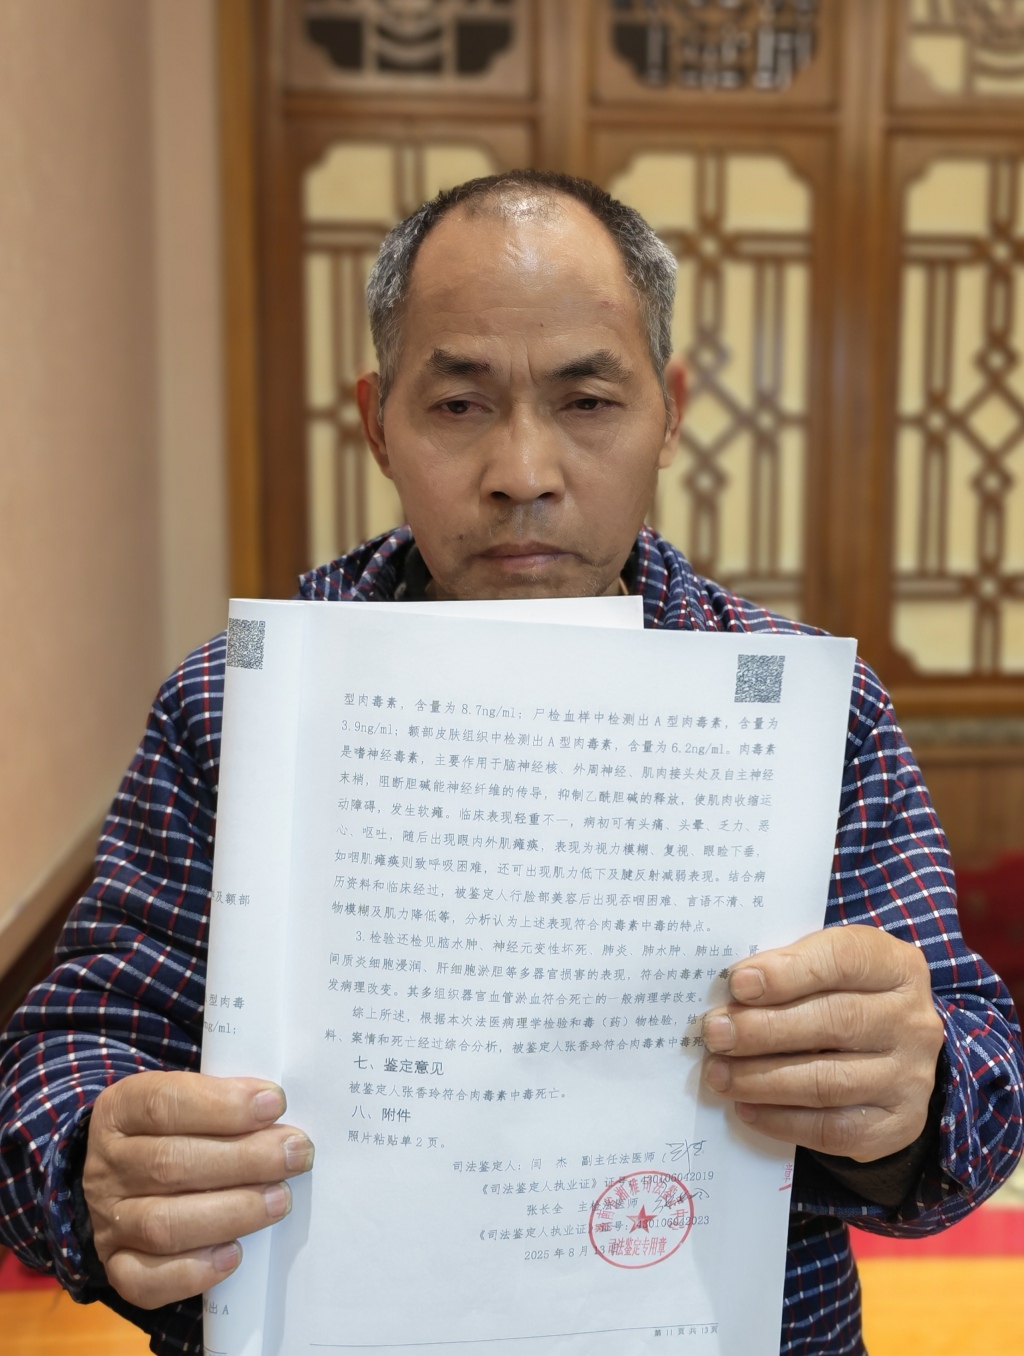 型肉毒素，含量为 8.7ng/ml；尸检血样中检测出 A 型肉毒素，含量为
3.9ng/ml；额部皮肤组织中检测出 A 型肉毒素，含量为 6.2ng/ml。肉毒素
是嗜神经毒素，主要作用于脑神经核、外周神经、肌肉接头处及自主神经
末梢，阻断胆碱能神经纤维的传导，抑制乙酰胆碱的释放，使肌肉收缩运
动障碍，发生软瘫。临床表现轻重不一，病初可有头痛、头晕、乏力、恶
心、呕吐，随后出现眼内外肌瘫痪，表现为视力模糊、复视、眼睑下垂，
如咽肌瘫痪则致呼吸困难，还可出现肌力低下及腱反射减弱表现。结合病
历资料和临床经过，被鉴定人行脸部美容后出现吞咽困难、言语不清、视
物模糊及肌力降低等，分析认为上述表现符合肉毒素中毒的特点。
3.检验还检见脑水肿、神经元变性坏死、肺炎、肺水肿、肺出血、肾
间质炎细胞浸润、肝细胞淤胆等多器官损害的表现，符合肉毒素中毒
发病理改变。其多组织器官血管淤血符合死亡的一般病理学改变。
综上所述，根据本次法医病理学检验和毒（药）物检验，结
料、案情和死亡经过综合分析，被鉴定人张香玲符合肉毒素中毒死
七、鉴定意见
被鉴定人张香玲符合肉毒素中毒死亡。
八、附件
照片粘贴单 2 页。
司法鉴定人：闵 杰 副主任法医师
《司法鉴定人执业证》证号：430106042019
张长全 主检法医师
《司法鉴定人执业证》证号：430106042023
2025 年 8 月 13
司法鉴定专用章
第 11 页 共 13 页
及额部
型肉毒
ng/ml；
出 A